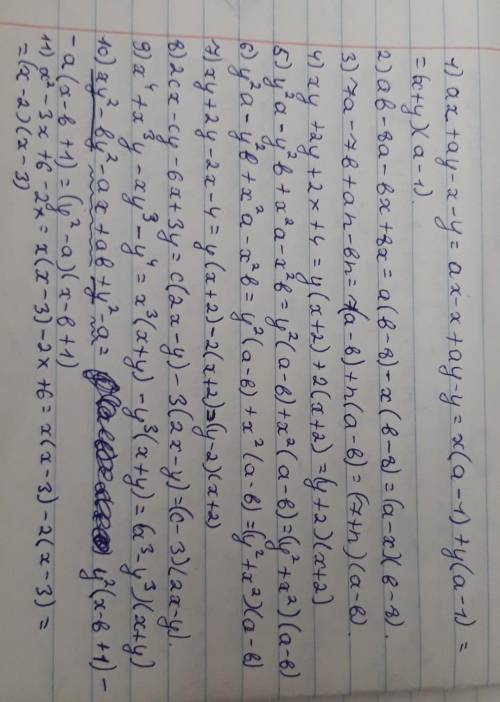 1) ax + ay - x - y = ax - x + ay - y = x(a-1) + y(a-1) =
= (x+y)(a-1).
2) ab - 8a - bx + 8x = a(b-8) - x(b-8) = (a-x)(b-8).
3) 7a - 7b + an - bn = 7(a-b) + n(a-b) = (7+n)(a-b).
4) xy + 2y + 2x + 4 = y(x+2) + 2(x+2) = (y+2)(x+2)
5) y²a - y²b + x²a - x²b = y²(a-b) + x²(a-b) = (y²+x²)(a-b)
6) y²a - y²b + x²a - x²b = y²(a-b) + x²(a-b) = (y²+x²)(a-b)
7) xy + 2y - 2x - 4 = y(x+2) - 2(x+2) = (y-2)(x+2)
8) 2cx - cy - 6x + 3y = c(2x-y) - 3(2x-y) = (c-3)(2x-y).
9) x⁴ + x³y - xy³ - y⁴ = x³(x+y) - y³(x+y) = (x³-y³)(x+y)
10) xy² - by² - ax + ab + y² - a = y²(x-b+1) -
- a(x-b+1) = (y²-a)(x-b+1)
11) x² - 3x + 6 - 2x = x(x-3) - 2x + 6 = x(x-3) - 2(x-3) =
= (x-2)(x-3)